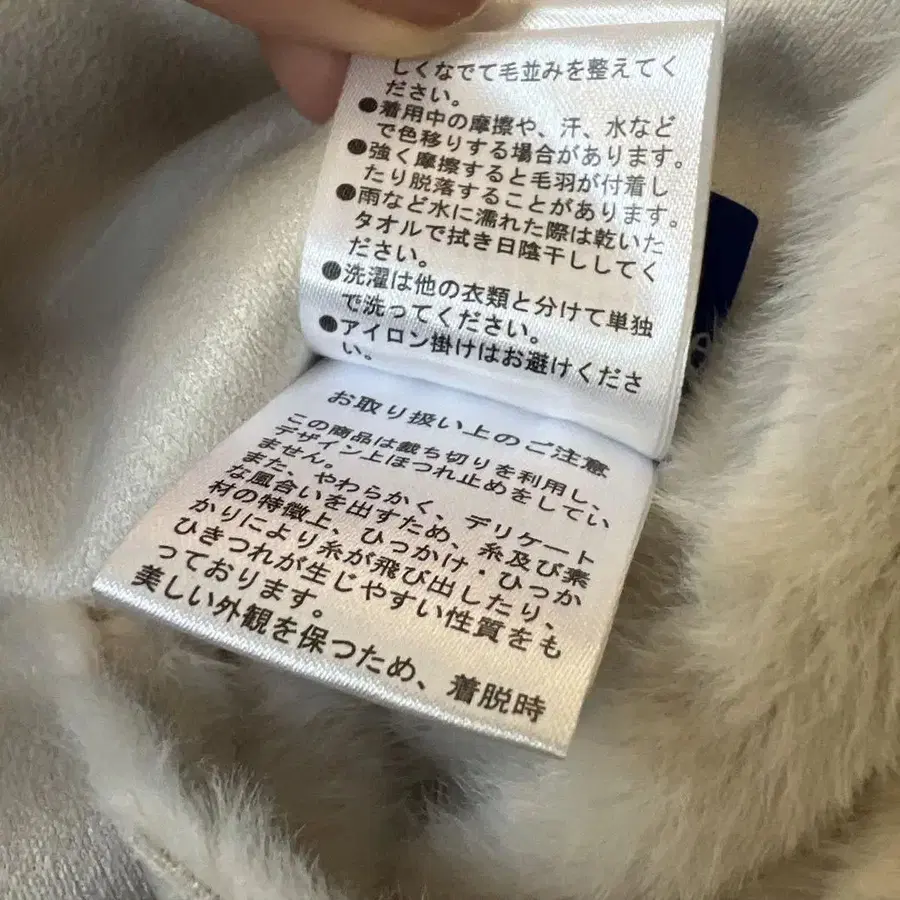 しくなでて毛並みを整えてく
ださい。
●着用中の摩擦や、汗、水など
で色移りする場合があります。
●強く摩擦すると毛羽が付着し
たり脱落することがあります。
●雨など水に濡れた際は乾いた
タオルで拭き日陰干ししてく
ださい。
●洗濯は他の衣類と分けて単独
で洗ってください。
●アイロン掛けはお避けくださ
い。
お取り扱い上のご注意
この商品は裁ち切りを利用し、
デザイン上ほつれ止めをしてい
ません。
また、やわらかく、デリケート
な風合いを出すため、糸及び素
材の特徴上、ひっかけ・ひっか
かりにより糸が飛び出したり、
ひきつれが生じやすい性質をも
っております。
美しい外観を保つため、着脱時